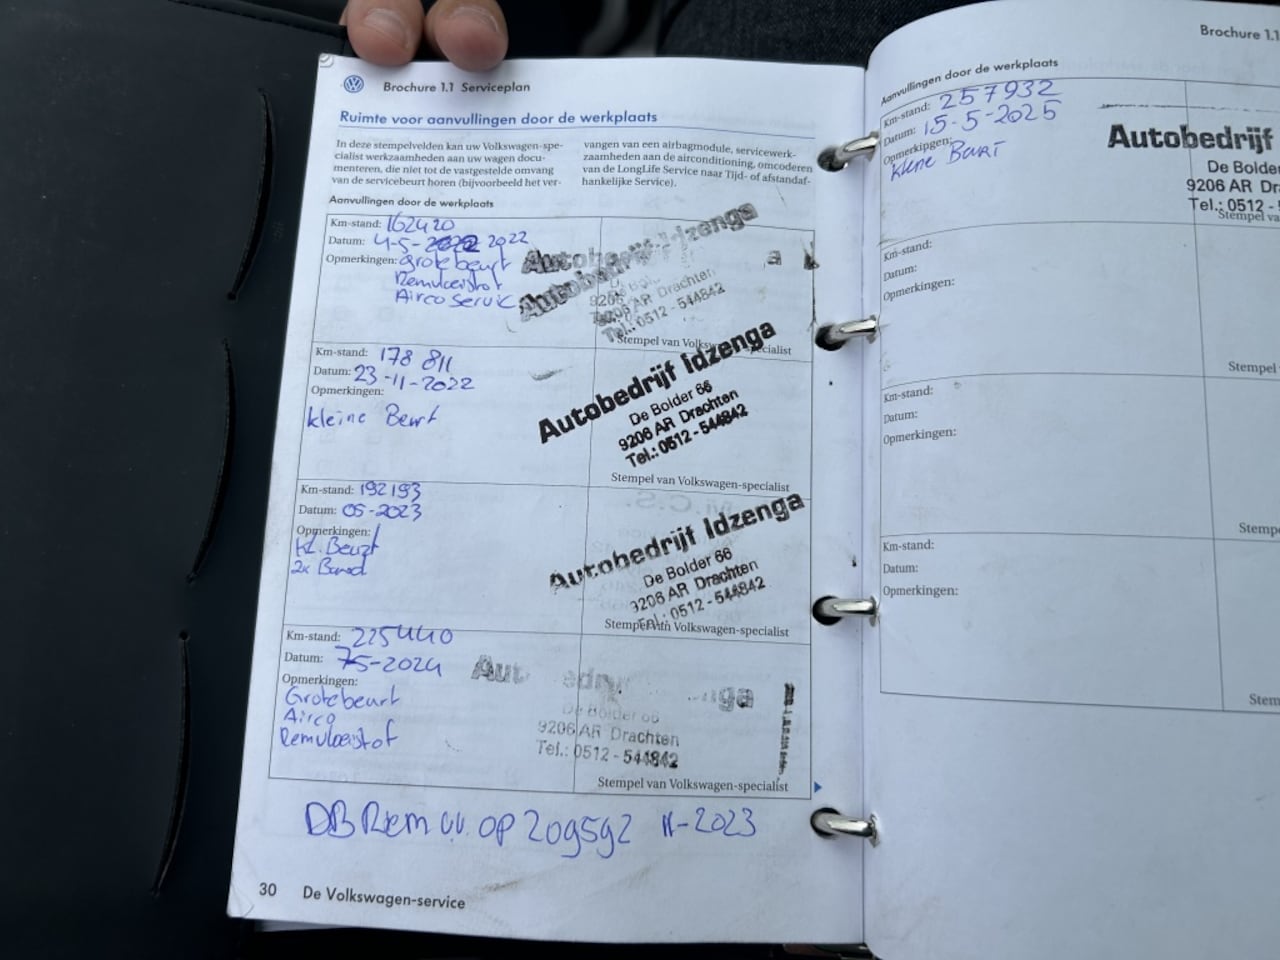 Brochure 1.1 Serviceplan
Ruimte voor aanvullingen door de werkplaats
In deze stempelvelden kan uw Volkswagen-spe-
cialist werkzaamheden aan uw wagen docu-
menteren, die niet tot de vastgestelde omvang
van de servicebeurt horen (bijvoorbeeld het ver-
vangen van een airbagmodule, servicewerk-
zaamheden aan de airconditioning, omcoderen
van de LongLife Service naar Tijd- of afstandaf-
hankelijke Service).
Aanvullingen door de werkplaats
Km-stand: 162420
Datum: 4-5-2022 2022
Opmerkingen: grote beurt
Remvloeistof
Airco servic
Autobedrijf Idzenga
9206 AR Drachten
Tel.: 0512 - 544842
Stempel van Volkswagen-specialist
Km-stand: 178 811
Datum: 23-11-2022
Opmerkingen:
kleine Beurt
Autobedrijf Idzenga
De Bolder 66
9206 AR Drachten
Tel.: 0512 - 544842
Stempel van Volkswagen-specialist
Km-stand: 192193
Datum: 05-2023
Opmerkingen:
kl. Beurt
2x Band
Autobedrijf Idzenga
De Bolder 66
9206 AR Drachten
Tel.: 0512 - 544842
Stempel van Volkswagen-specialist
Km-stand: 225440
Datum: 75-2024
Opmerkingen:
Grote beurt
Airco
Remvloeistof
De Bolder 66
9206 AR Drachten
Tel.: 0512 - 544842
Stempel van Volkswagen-specialist
DB Riem v.v. op 209592 11-2023
30 De Volkswagen-service
Brochure 1.1
Aanvullingen door de werkplaats
Km-stand: 257932
Datum: 15-5-2025
Opmerkingen:
kleine Beurt
Autobedrijf
De Bolder
9206 AR Dra
Tel.: 0512 -
Stempel va
Km-stand:
Datum:
Opmerkingen:
Stempel
Km-stand:
Datum:
Opmerkingen:
Stempe
Km-stand:
Datum:
Opmerkingen:
Stem